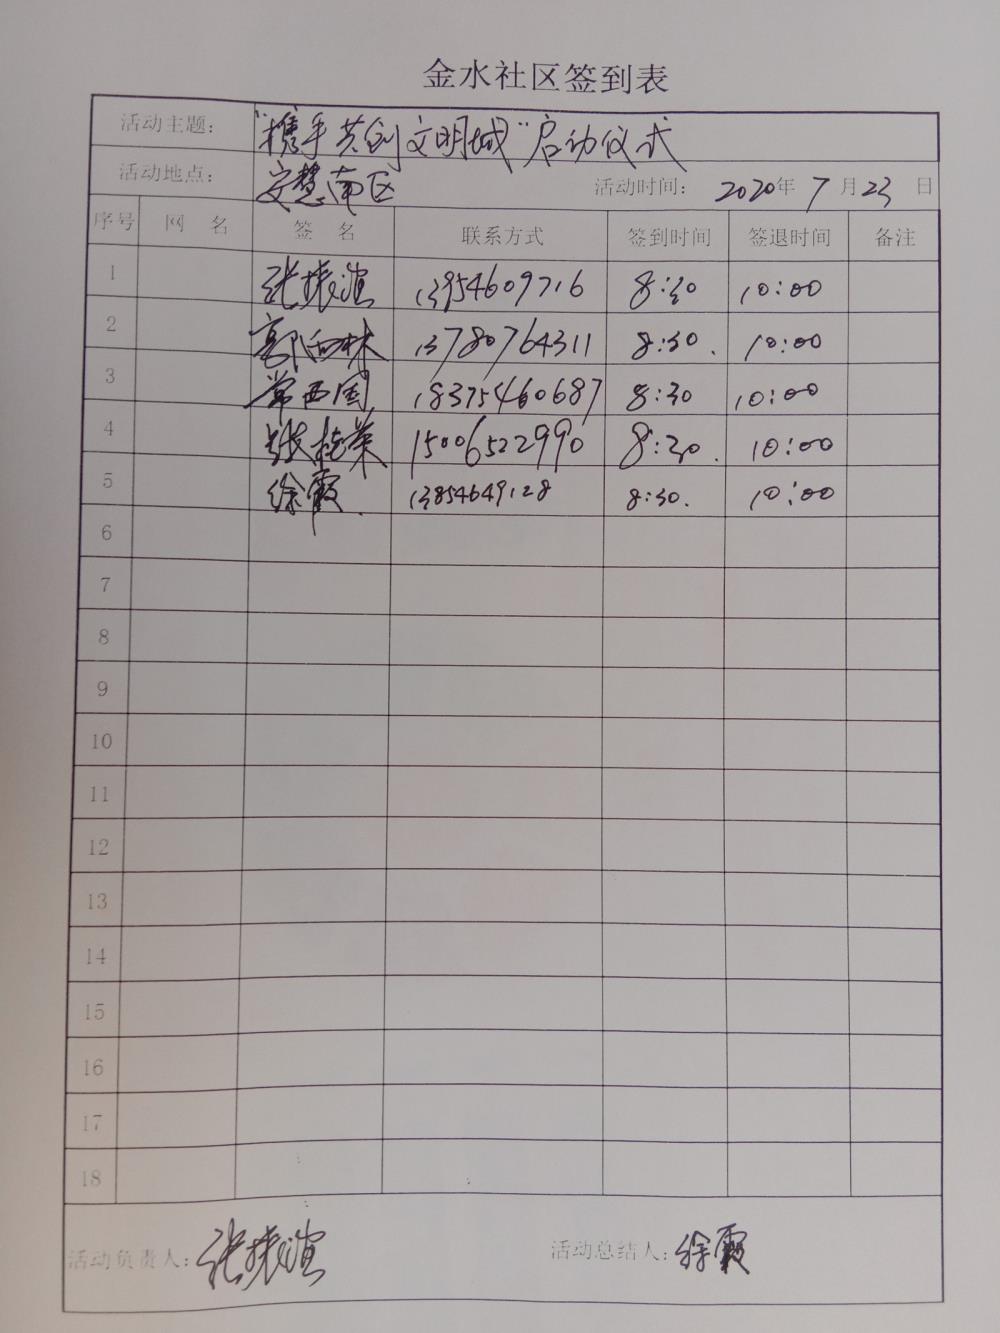 金水社区签到表
活动主题： “携手共创文明城”启动仪式
活动地点： 安慧南区 活动时间： 2020年 7 月 23 日
序号 网 名 签 名 联系方式 签到时间 签退时间 备注
1 张振滨 13954609716 8:30 10:00
2 13780764311 8:30. 10:00
3 常西国 18375460687 8:30 10:00
4 张桂英 15006522990 8:30. 10:00
5 徐霞. 13854649128 8:30. 10:00
6
7
8
9
10
11
12
13
14
15
16
17
18
活动负责人： 张振滨 活动总结人： 徐霞